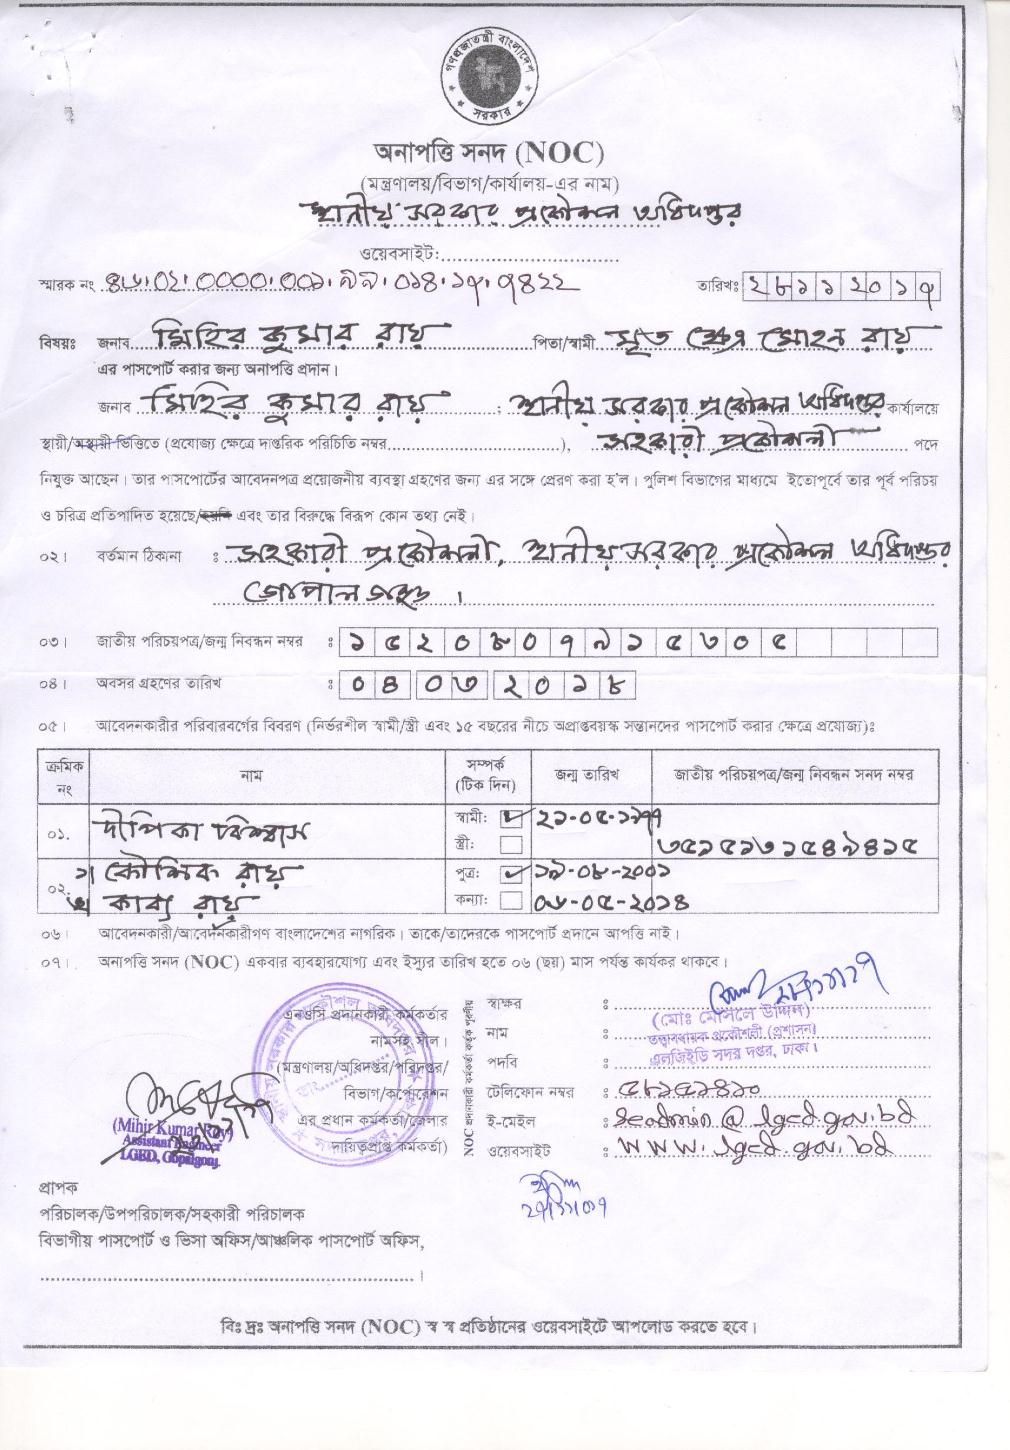 গণপ্রজাতন্ত্রী বাংলাদেশ
সরকার
অনাপত্তি সনদ (NOC)
(মন্ত্রণালয়/বিভাগ/কার্যালয়-এর নাম)
স্থানীয় সরকার প্রকৌশল অধিদপ্তর
ওয়েবসাইট:
স্মারক নং ৪৬.০২.০০০০.০০১.৯৯.০১৪.১৭.৭৪২২ তারিখঃ ২৮১১২০১৭
বিষয়ঃ জনাব মিহির কুমার রায় পিতা/স্বামী মৃত ক্ষেত্র মোহন রায়
এর পাসপোর্ট করার জন্য অনাপত্তি প্রদান।
জনাব মিহির কুমার রায় ; স্থানীয় সরকার প্রকৌশল অধিদপ্তর কার্যালয়ে
স্থায়ী/অস্থায়ী ভিত্তিতে (প্রযোজ্য ক্ষেত্রে দাপ্তরিক পরিচিতি নম্বর), সহকারী প্রকৌশলী পদে
নিযুক্ত আছেন। তার পাসপোর্টের আবেদনপত্র প্রয়োজনীয় ব্যবস্থা গ্রহণের জন্য এর সঙ্গে প্রেরণ করা হ'ল। পুলিশ বিভাগের মাধ্যমে ইতোপূর্বে তার পূর্ব পরিচয়
ও চরিত্র প্রতিপাদিত হয়েছে/হয়নি এবং তার বিরুদ্ধে বিরূপ কোন তথ্য নেই।
০২। বর্তমান ঠিকানা : সহকারী প্রকৌশলী, স্থানীয় সরকার প্রকৌশল অধিদপ্তর
গোপালগঞ্জ।
০৩। জাতীয় পরিচয়পত্র/জন্ম নিবন্ধন নম্বর : ১৫২০৮০৭৯১৫৩০৫
০৪। অবসর গ্রহণের তারিখ : ০৪০৩২০১৮
০৫। আবেদনকারীর পরিবারবর্গের বিবরণ (নির্ভরশীল স্বামী/স্ত্রী এবং ১৫ বছরের নীচে অপ্রাপ্তবয়স্ক সন্তানদের পাসপোর্ট করার ক্ষেত্রে প্রযোজ্য)ঃ
ক্রমিক নং নাম সম্পর্ক (টিক দিন) জন্ম তারিখ জাতীয় পরিচয়পত্র/জন্ম নিবন্ধন সনদ নম্বর
০১. দীপিকা বিশ্বাস স্বামী: ২১-০৫-১৯৭৭
স্ত্রী: ৩৫১৫১৩১৫৪৯৪১৫
০২. ১। কৌশিক রায় পুত্র: ১৯-০৮-২০০১
২। কাব্য রায় কন্যা: ০৬-০৫-২০১৪
০৬। আবেদনকারী/আবেদনকারীগণ বাংলাদেশের নাগরিক। তাকে/তাদেরকে পাসপোর্ট প্রদানে আপত্তি নাই।
০৭। অনাপত্তি সনদ (NOC) একবার ব্যবহারযোগ্য এবং ইস্যুর তারিখ হতে ০৬ (ছয়) মাস পর্যন্ত কার্যকর থাকবে।
এনওসি প্রদানকারী কর্মকর্তার
নামসহ সীল।
(মন্ত্রণালয়/অধিদপ্তর/পরিদপ্তর/
বিভাগ/কর্পোরেশন
এর প্রধান কর্মকর্তা/জেলার
দায়িত্বপ্রাপ্ত কর্মকর্তা)
NOC প্রদানকারী কর্মকর্তা কর্তৃক পূরণীয়
স্বাক্ষর :
নাম : (মোঃ মোসলে উদ্দিন)
তত্ত্বাবধায়ক প্রকৌশলী (প্রশাসন)
পদবি : এলজিইডি সদর দপ্তর, ঢাকা।
টেলিফোন নম্বর : ৫৮১৫২৪১০
ই-মেইল : seadmin@lged.gov.bd
ওয়েবসাইট : www.lged.gov.bd
(Mihir Kumar Roy)
Assistant Engineer
LGED, Gopalgonj.
প্রাপক
পরিচালক/উপপরিচালক/সহকারী পরিচালক
বিভাগীয় পাসপোর্ট ও ভিসা অফিস/আঞ্চলিক পাসপোর্ট অফিস,
।
বিঃ দ্রঃ অনাপত্তি সনদ (NOC) স্ব স্ব প্রতিষ্ঠানের ওয়েবসাইটে আপলোড করতে হবে।